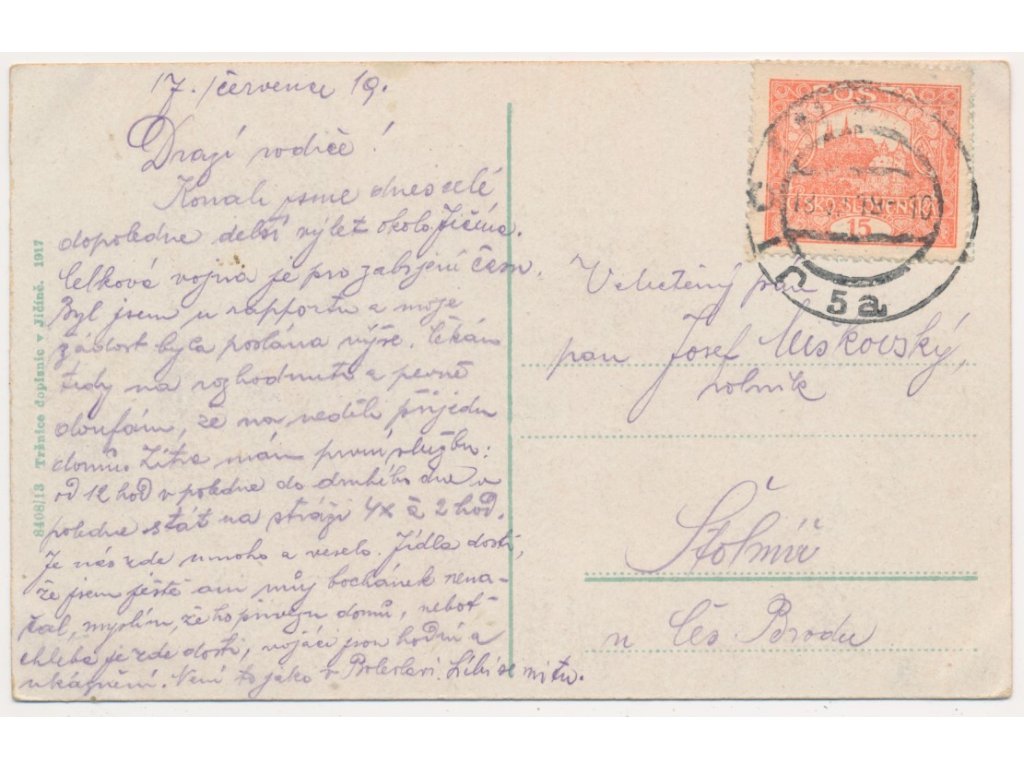 17. července 19.
Drazí rodiče!
Konali jsme dnes celé
dopoledne delší výlet okolo Jičína.
Celková vojna je pro zabijení času.
Byl jsem u rapportu a moje
žádost byla poslána výše. Čekám
tedy na rozhodnutí a pevně
doufám, že na neděli přijedu
domů. Zítra mám první službu:
od 12 hod v poledne do druhého dne v
poledne stát na stráži 4x à 2 hod.
Je nás zde mnoho a veselo. Jídla dosti,
že jsem ještě ani můj bochánek nena-
čal, myslím, že ho přivezu domů, neboť
chleba je zde dosti, vojáci jsou hodní a
ukáznění. Není to jako v Boleslavi. Líbí se mi tu.
8408/13 Tržnice dopisnic v Jičíně. 1917
POŠTA
15
5a
Velectěný pán
pan Josef Miškovský,
rolník
Štolmíř
u Čes. Brodu